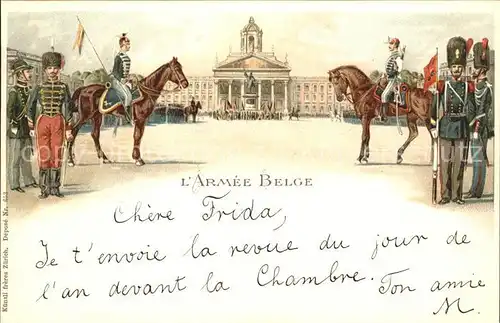 L'ARMÉE BELGE
Chère Frida,
Je t'envoie la revue du jour de
l'an devant la Chambre. Ton amie
M.
Künzli frères Zürich. Deposé Nr.